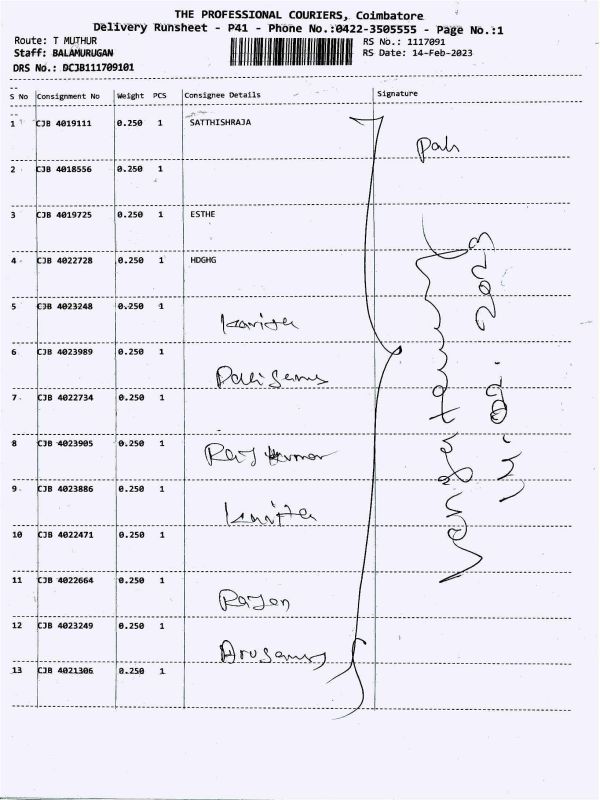 THE PROFESSIONAL COURIERS, Coimbatore
Delivery Runsheet - P41 - Phone No.:0422-3505555 - Page No.:1
Route: T MUTHUR
RS No.: 1117091
Staff: BALAMURUGAN
RS Date: 14-Feb-2023
DRS No.: DCJB111709101
S No Consignment No Weight PCS Consignee Details Signature
1 CJB 4019111 0.250 1 SATTHISHRAJA
2 CJB 4018556 0.250 1
3 CJB 4019725 0.250 1 ESTHE
4 CJB 4022728 0.250 1 HDGHG
5 CJB 4023248 0.250 1
Kavitha
6 CJB 4023989 0.250 1
7 CJB 4022734 0.250 1
8 CJB 4023905 0.250 1
Raj Kumar
9 CJB 4023886 0.250 1
Kavitha
10 CJB 4022471 0.250 1
11 CJB 4022664 0.250 1
Rajan
12 CJB 4023249 0.250 1
13 CJB 4021306 0.250 1